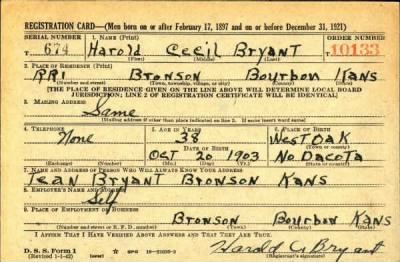 REGISTRATION CARD—(Men born on or after February 17, 1897 and on or before December 31, 1921)
SERIAL NUMBER 1. NAME (Print) ORDER NUMBER
674 Harold Cecil Bryant 10133
(First) (Middle) (Last)
2. PLACE OF RESIDENCE (Print)
RR1 Bronson Bourbon Kans
(Number and street) (Town, township, village, or city) (County) (State)
[THE PLACE OF RESIDENCE GIVEN ON THE LINE ABOVE WILL DETERMINE LOCAL BOARD
JURISDICTION; LINE 2 OF REGISTRATION CERTIFICATE WILL BE IDENTICAL]
3. MAILING ADDRESS
Same
[Mailing address if other than place indicated on line 2. If same insert word same]
4. TELEPHONE 5. AGE IN YEARS 6. PLACE OF BIRTH
None 38 West Oak
DATE OF BIRTH (Town or county)
Oct 20 1903 No Dacota
(Exchange) (Number) (Mo.) (Day) (Yr.) (State or country)
7. NAME AND ADDRESS OF PERSON WHO WILL ALWAYS KNOW YOUR ADDRESS
Bryant Bronson Kans
8. EMPLOYER'S NAME AND ADDRESS
Self
9. PLACE OF EMPLOYMENT OR BUSINESS
Bronson Bourbon Kans
(Number and street or R. F. D. number) (Town) (County) (State)
I AFFIRM THAT I HAVE VERIFIED ABOVE ANSWERS AND THAT THEY ARE TRUE.
D. S. S. Form 1
(Revised 1-1-42) (over) Harold C Bryant